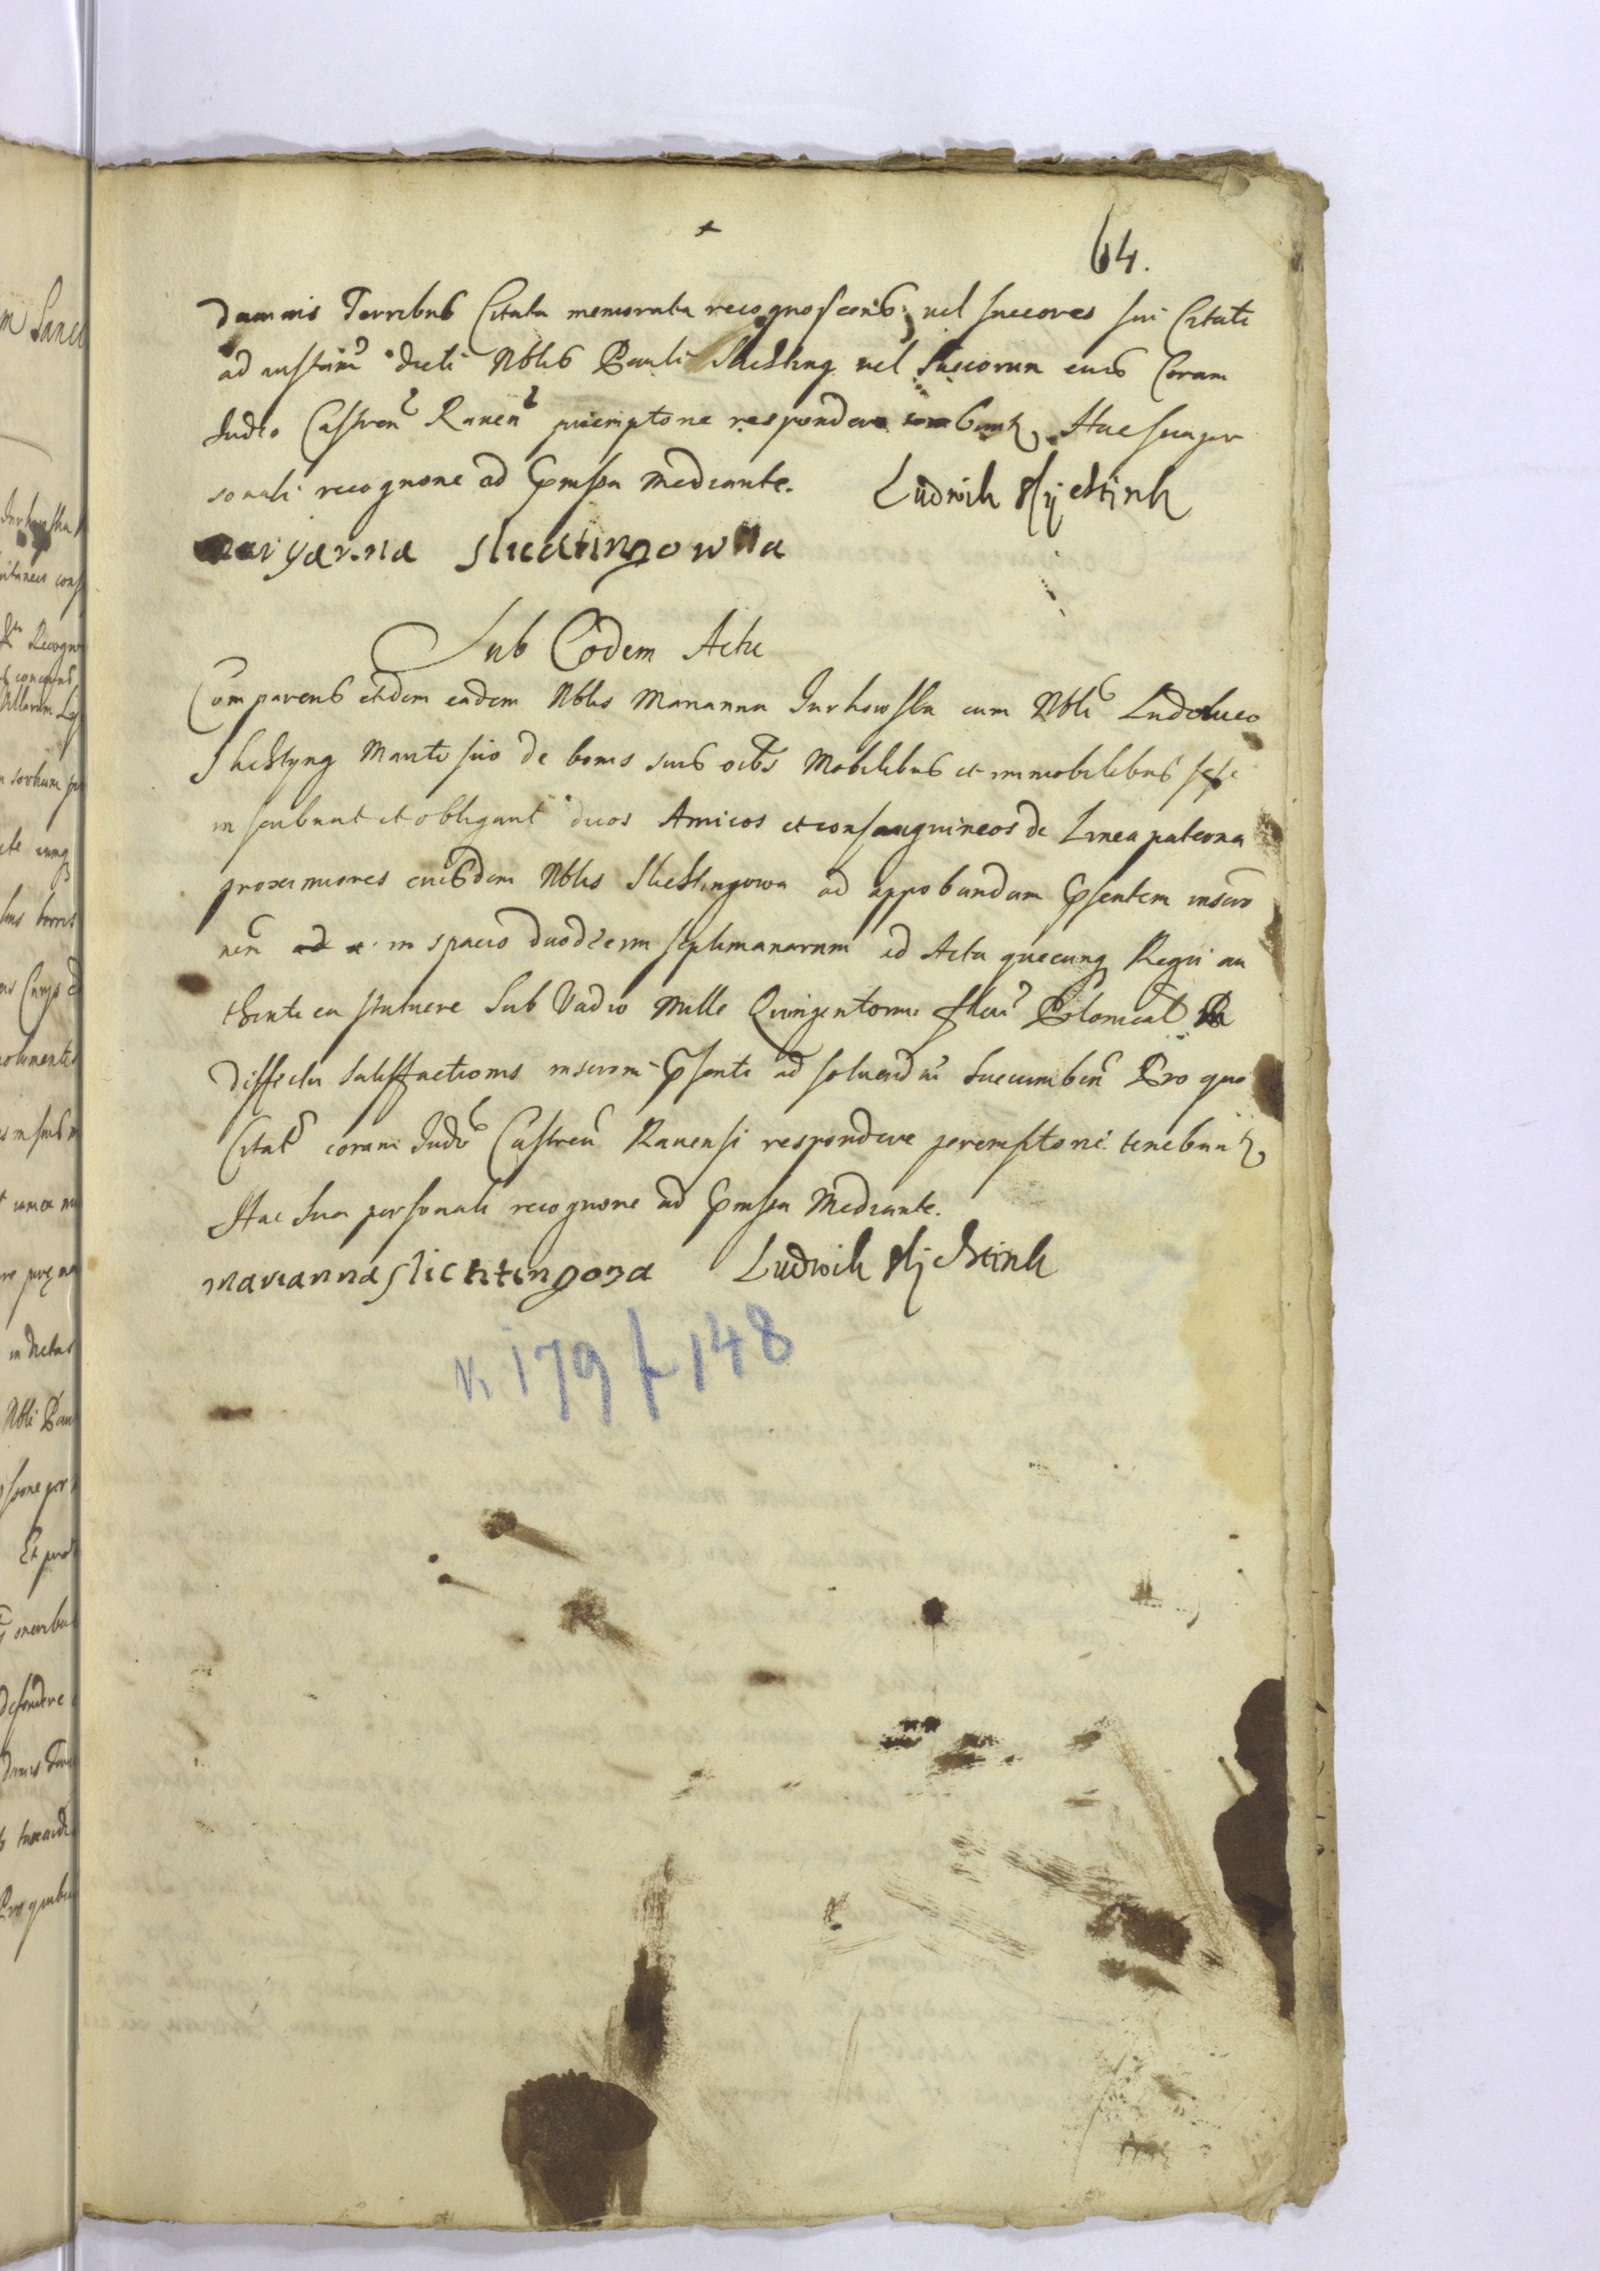 64.
damnis Terribus Citata memorata recognoscens, vel succores sui Citati
ad instam dicti Nblis Pauli Slichting vel succorum eius Coram
Judio Castren Raven peremptorie respondere tenebunt, Hac sua per
sonali recognone ad Pmssa mediante. Ludwik Slychtink
maryanna slichtingowna
Sub Eodem Actu
Comparens itidem eadem Nblis Marianna Jurkowska cum Nbli Ludovico
Slichtyng Marito suo de bonis suis oibs Mobilibus et immobilibus sese
inscribunt et obligant duos Amicos et consanguineos de Linea paterna
proximiores eiusdem Nblis Slichtingowa ad appobandam Psentem inscro
nem in spacio duodecim septimanarum ad Acta quecunq Regni au
thentica statuere Sub Vadio Mille Quingentorum flor Polonical
diffectu satisfactionis inscroni Psenti ad solvendum succumben Pro quo
Citat coram Judio Castren Ravensi respondere peremptorie tenebunt
Hac Sua personali recognone ad Pmssa Mediante.
marianna slichtingowa Ludwik Slychtink
N 179 f 148